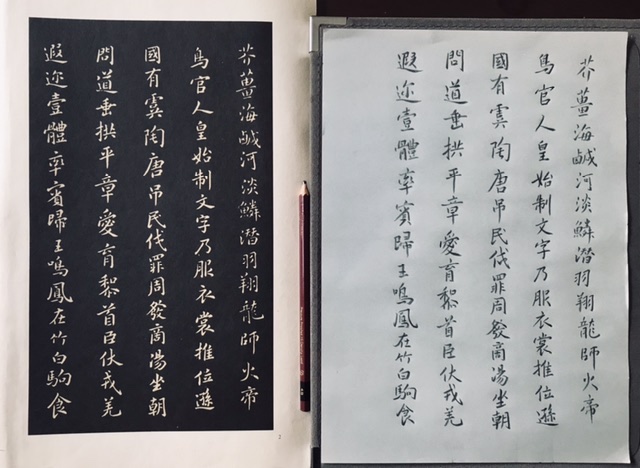 芥薑海鹹河淡鱗潜羽翔龍師火帝
鳥官人皇始制文字乃服衣裳推位遜
國有虞陶唐吊民伐罪周發商湯坐朝
問道垂拱平章愛育黎首臣伏戎羌
遐迩壹體率賓歸王鳴鳳在竹白駒食
2
芥薑海鹹河淡鱗潜羽翔龍師火帝
鳥官人皇始制文字乃服衣裳推位遜
國有虞陶唐吊民伐罪周發商湯坐朝
問道垂拱平章愛育黎首臣伏戎羌
遐迩壹體率賓歸王鳴鳳在竹白駒食